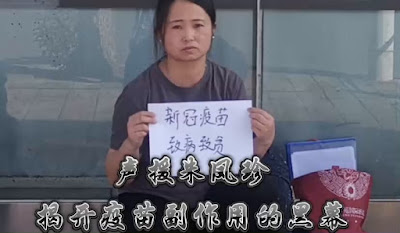 新冠疫苗
致病致
声援朱凤珍
揭开疫苗副作用的黑幕